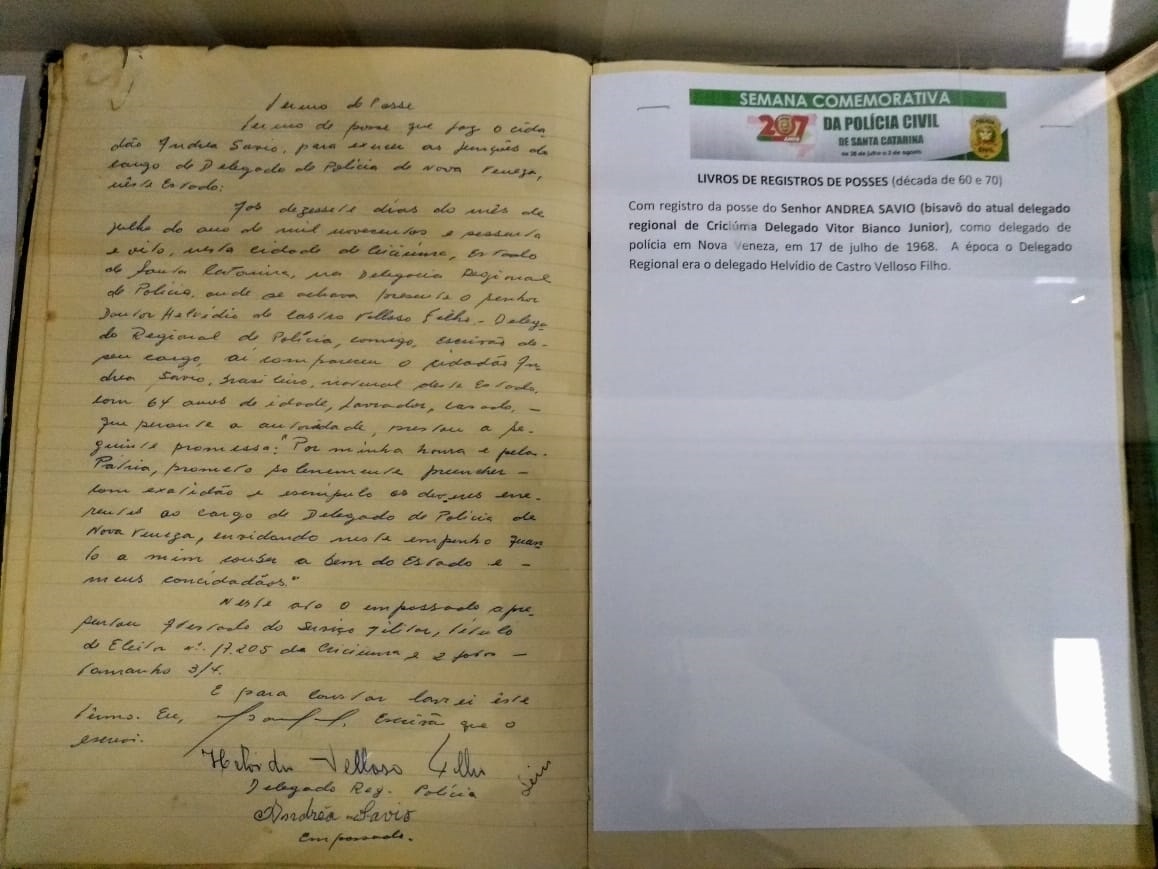 Termo de Posse
Termo de posse que faz o cida
dão Andrea Savio, para exercer as funções do
cargo de Delegado de Polícia de Nova Veneza,
nêste Estado:
Aos dezessete dias do mês de
julho do ano de mil novecentos e sessenta
e oito, nesta cidade de Criciúma, Estado
de Santa Catarina, na Delegacia Regional
de Polícia, onde se achava presente o senhor
Doutor Helvídio de Castro Velloso Filho - Delega
do Regional de Polícia, comigo, escrivão de
seu cargo, aí compareceu o cidadão An
drea Sávio, brasileiro, natural deste Estado,
com 64 anos de idade, lavrador, casado, -
que perante a autoridade, prestou a se-
guinte promessa: "Por minha honra e pela
Pátria, prometo solenemente preencher -
com exatidão e escrúpulo os deveres ene-
rentes ao cargo de Delegado de Polícia de
Nova Veneza, envidando neste empenho quan
to a mim couber a bem do Estado e -
meus concidadãos."
Neste ato o empossado apre-
sentou Atestado do Serviço Militar, título
de Eleitor nº. 17.205 da Criciuma e 2 fotos -
tamanho 3/4.
E para constar lavrei êste
têrmo. Eu, Escrivão que o
escrevi.
Helvidio Velloso Filho
Delegado Reg. Polícia
Andréa Savio
Empossado.
SEMANA COMEMORATIVA
207 ANOS
DA POLÍCIA CIVIL
DE SANTA CATARINA
de 28 de julho a 2 de agosto
LIVROS DE REGISTROS DE POSSES (década de 60 e 70)
Com registro da posse do Senhor ANDREA SAVIO (bisavô do atual delegado
regional de Criciúma Delegado Vitor Bianco Junior), como delegado de
polícia em Nova Veneza, em 17 de julho de 1968. A época o Delegado
Regional era o delegado Helvídio de Castro Velloso Filho.